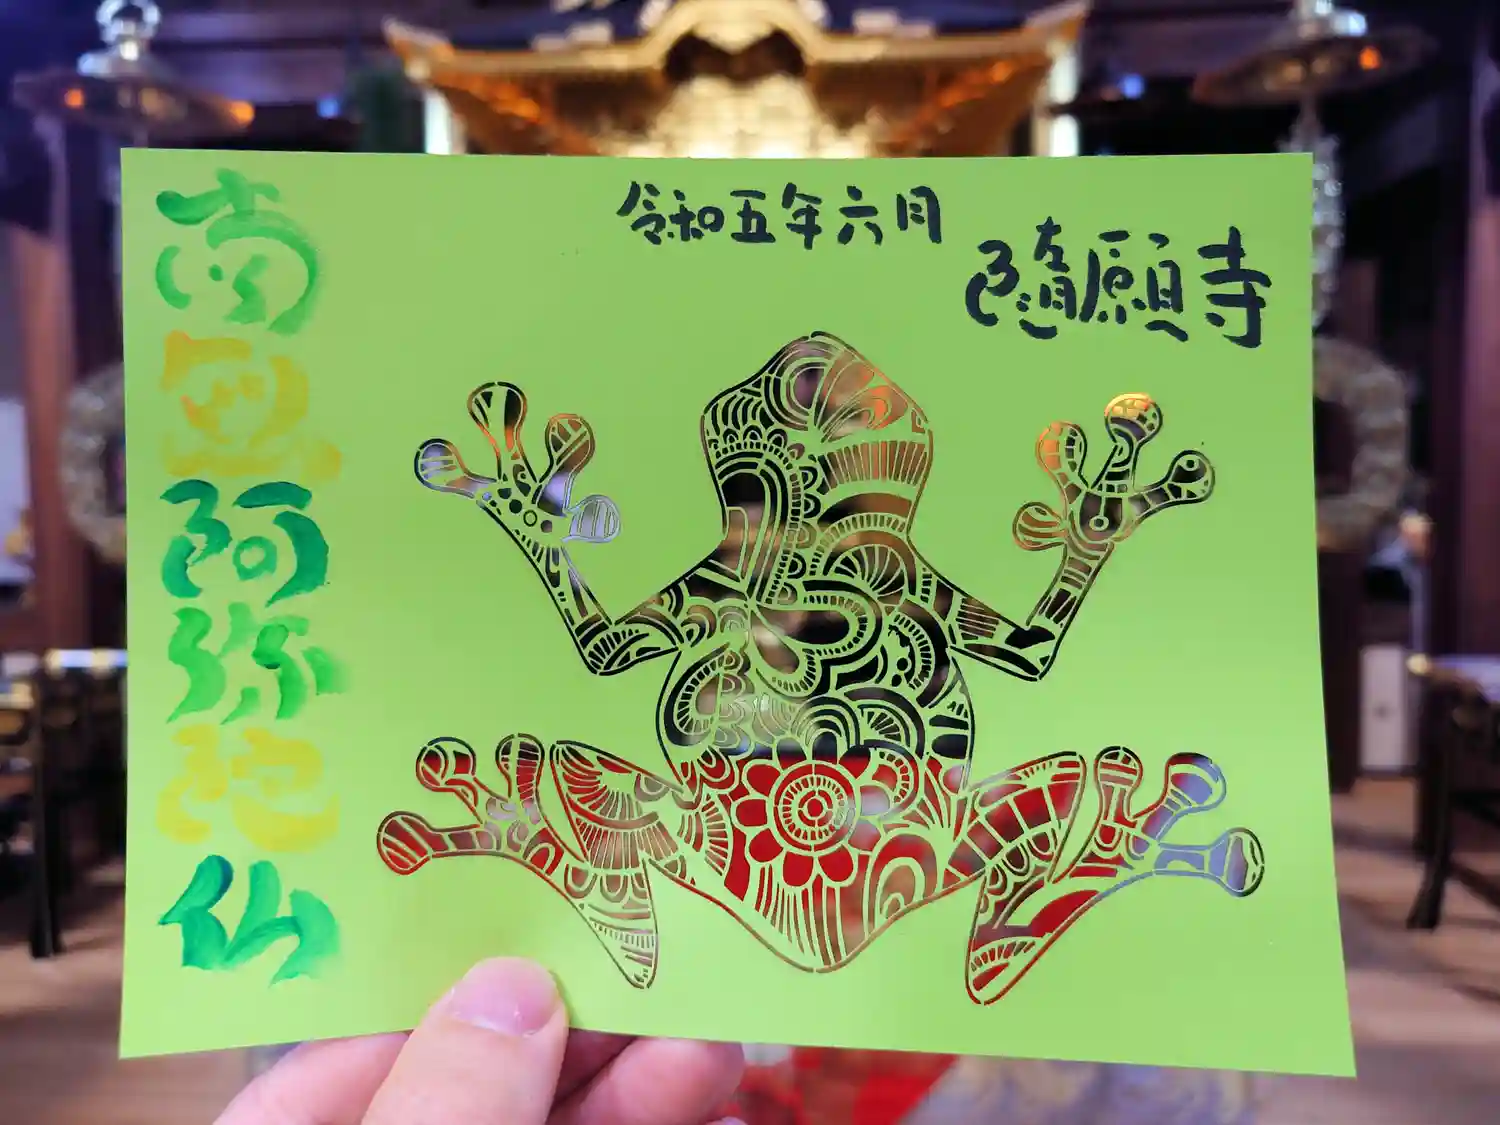 令和五年六月
隨願寺
南無阿弥陀仏